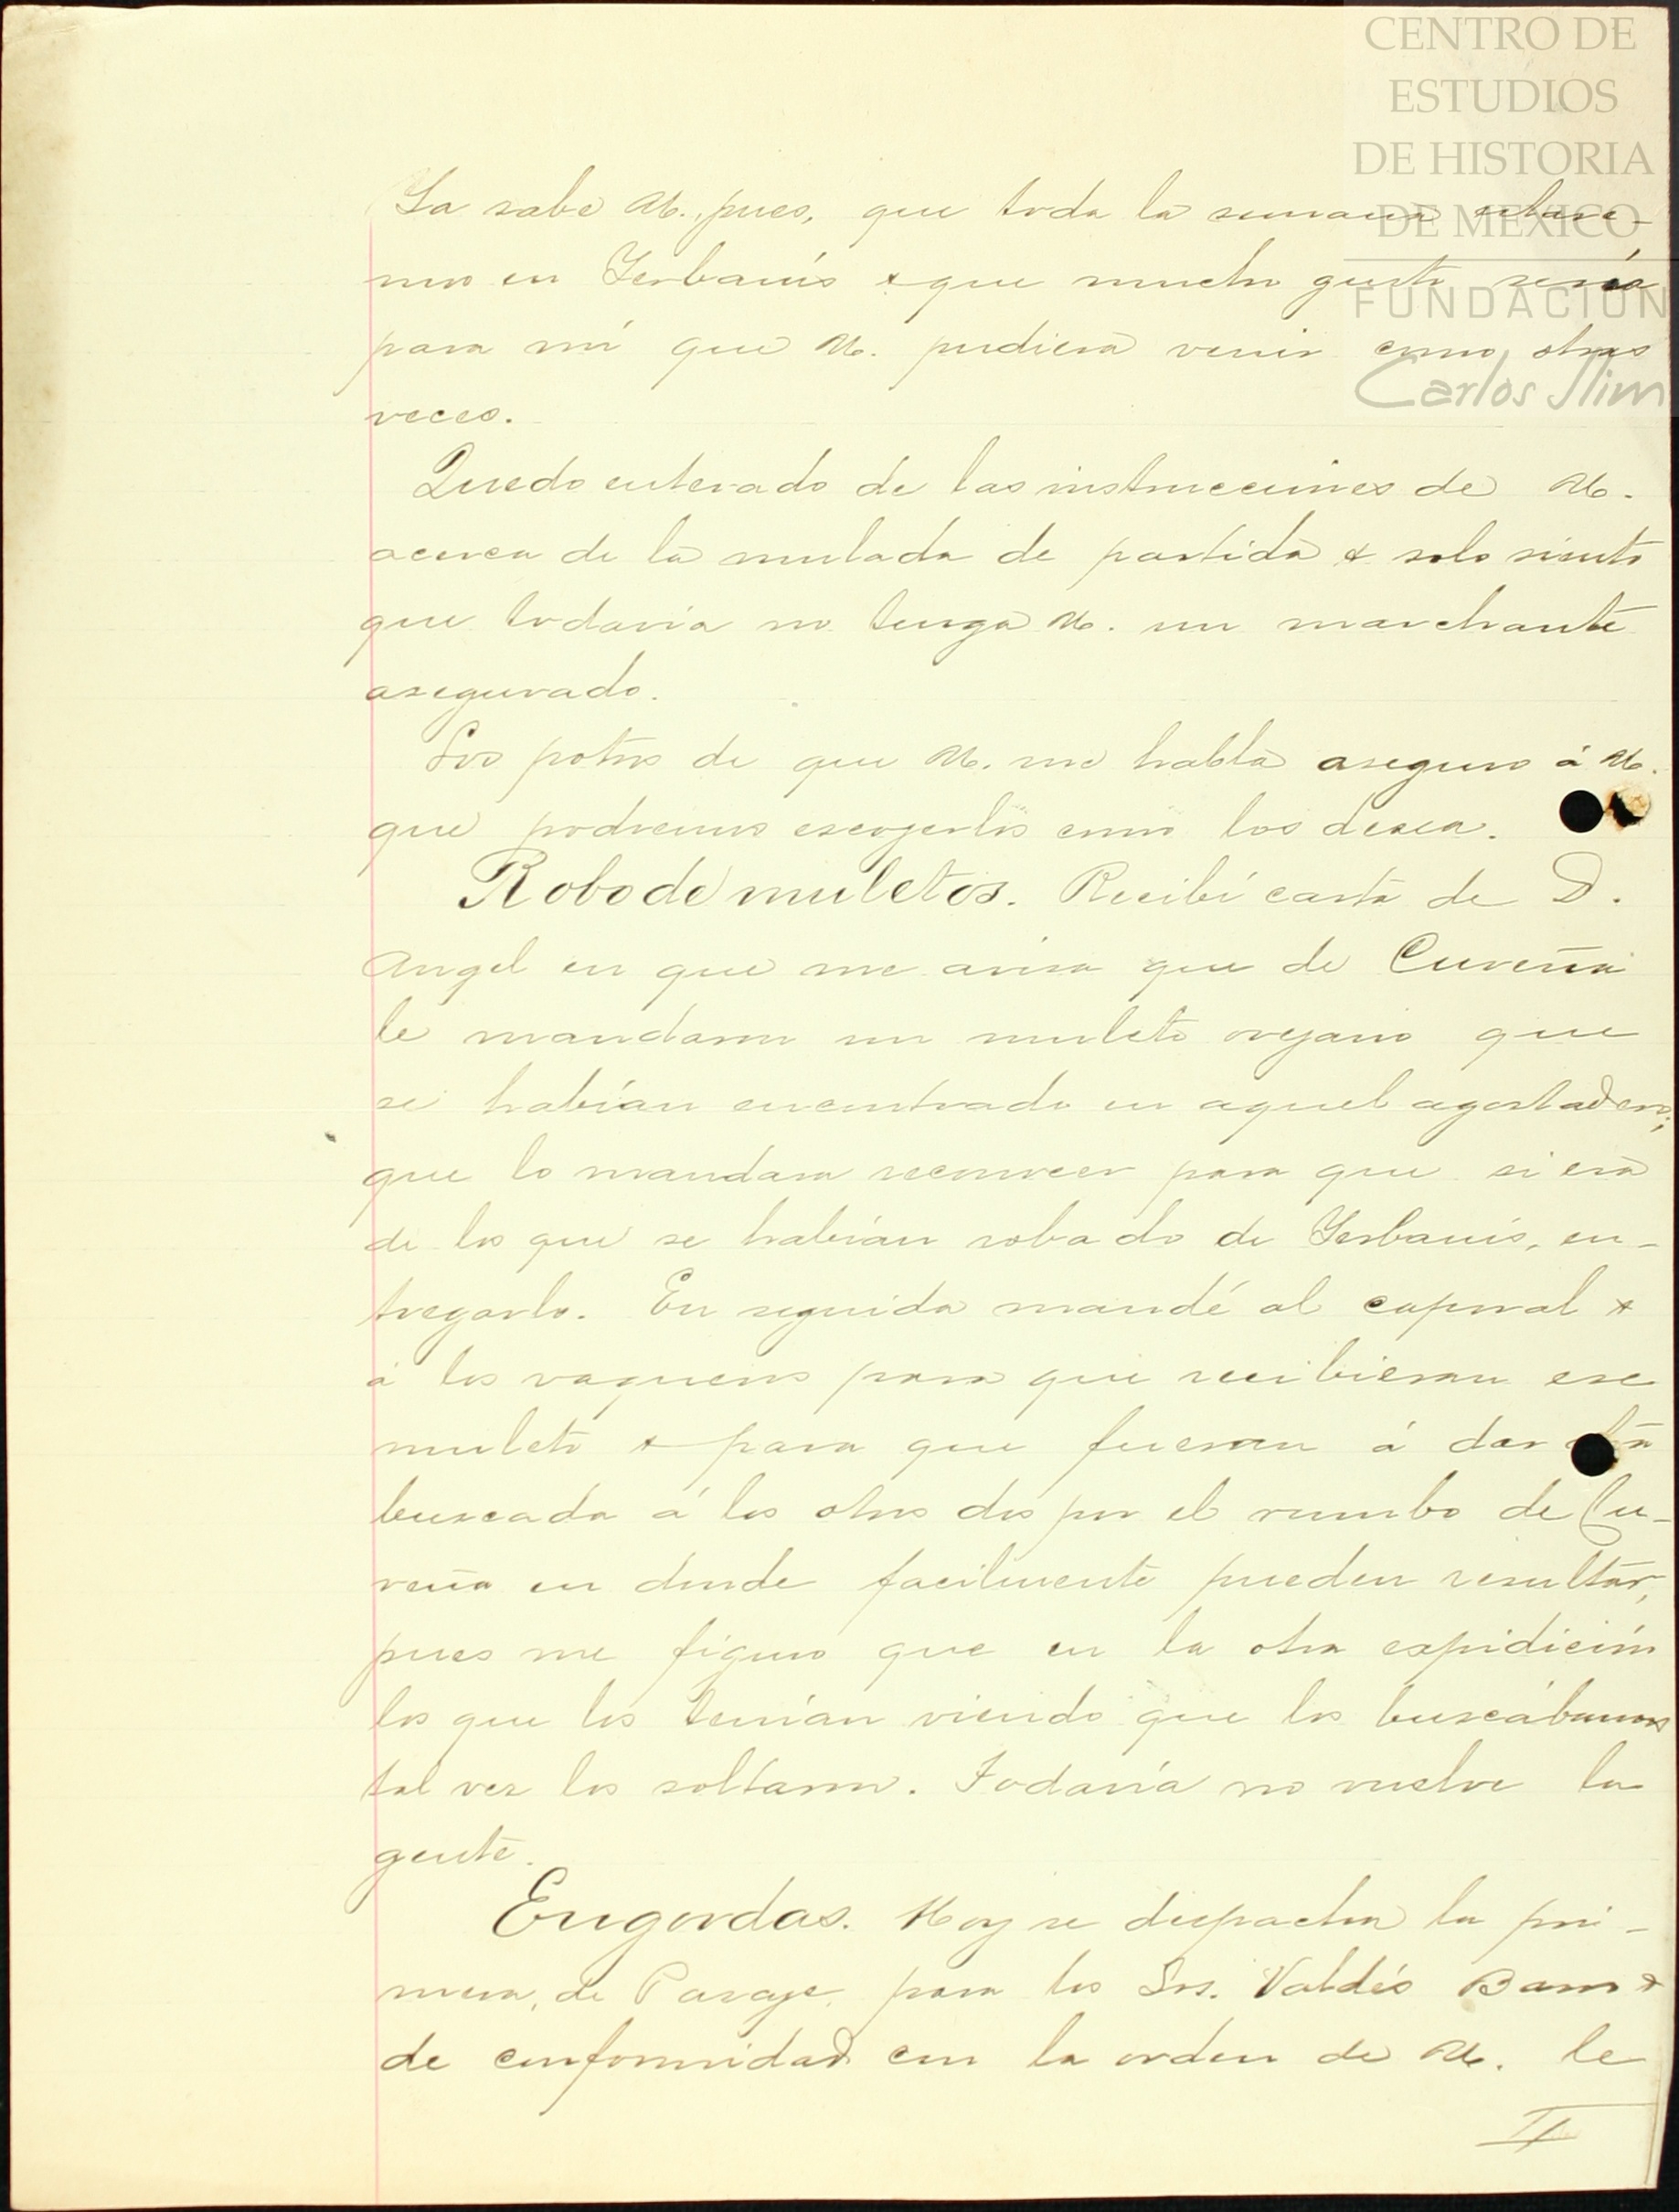 CENTRO DE
ESTUDIOS
DE HISTORIA
DE MEXICO
FUNDACION
Carlos Slim
Ya sabe U., pues, que toda la semana estare-
mos en Yerbanís & que mucho gusto sería
para mí que U. pudiera venir como otras
veces.
Quedo enterado de las instrucciones de U.
acerca de la mulada de partida & solo siento
que todavía no tenga U. un marchante
asegurado.
Los potros de que U. me habla aseguro á U.
que podremos escogerlos como los desea.
Robo de muletos. Recibí carta de D.
Angel en que me avisa que de Cureña
le mandaron un muleto orejano que
se habían encontrado en aquel agostadero;
que lo mandara reconocer para que si era
de los que se habían robado de Yerbanís, en-
tregarlo. En seguida mandé al caporal &
á los vaqueros para que recibieran ese
muleto & para que fueran á dar otra
buscada á los otros dos por el rumbo de Cu-
reña en donde facilmente pueden resultar,
pues me figuro que en la otra espidición
los que los tenían viendo que los buscábamos
tal vez los soltaron. Todavía no vuelve la
gente.
Engordas. Hoy se despacha la pri-
mera, de Pasaje, para los Srs. Valdés Baro &
de conformidad con la orden de U. le
II